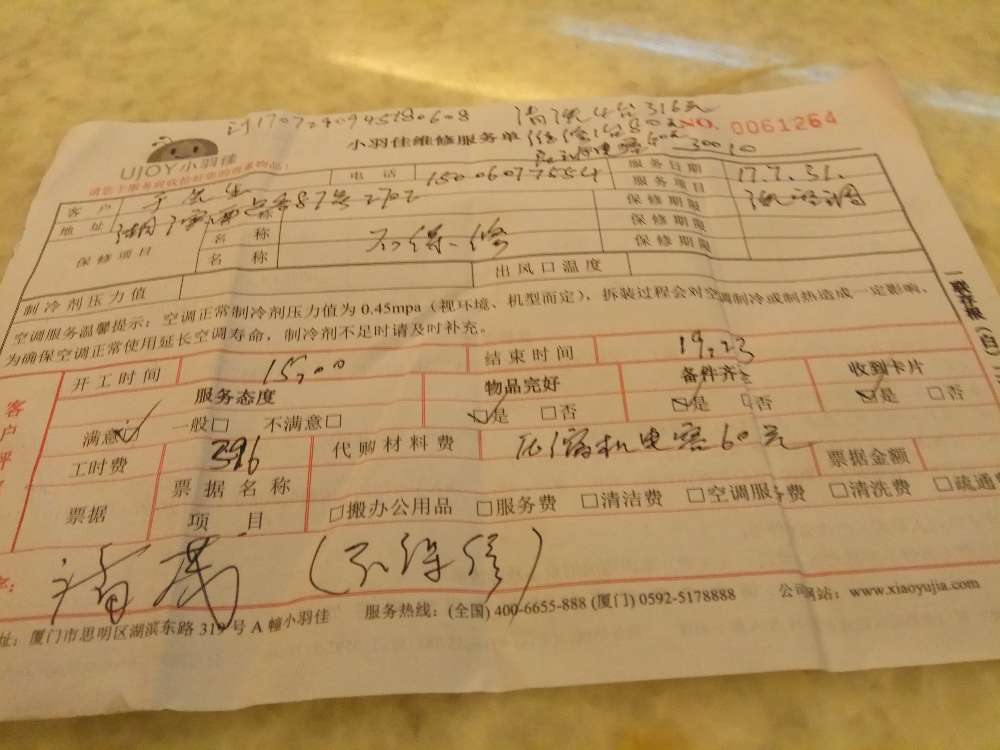 清洗4台316元
小羽佳维修服务单 NO. 0061264
UJOY小羽佳
请您于服务前收拾好您的贵重物品!
30010
客户 电话 服务日期 17.7.31.
地址 服务项目
保修项目 名称 不保修 保修期限
名称 保修期限
名称 保修期限
制冷剂压力值 出风口温度
空调服务温馨提示:空调正常制冷剂压力值为 0.45mpa(视环境、机型而定),拆装过程会对空调制冷或制热造成一定影响。
为确保空调正常使用延长空调寿命,制冷剂不足时请及时补充。
开工时间 15:00 结束时间 19:23
服务态度 物品完好 备件齐全 收到卡片
满意☑ 一般□ 不满意□ ☑是 □否 ☑是 □否 ☑是 □否
工时费 396 代购材料费 压缩机电容60元 票据金额
票据 票据名称
项目 □搬办公用品 □服务费 □清洁费 □空调服务费 □清洗费 □疏通费
(不保修)
址:厦门市思明区湖滨东路 319 号 A 幢小羽佳 服务热线:(全国) 400-6655-888 (厦门) 0592-5178888 公司网站:www.xiaoyujia.com
一联存根(白)